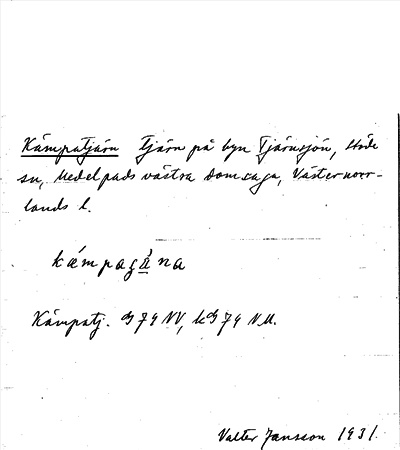 Kämpatjärn Tjärn på byn Tjärnsjön, Stöde
sn, Medelpads västra domsaga, Västernorr-
lands l.
Kämpatj. G 74 NV, kG 74 NV.
Valter Jansson 1931.